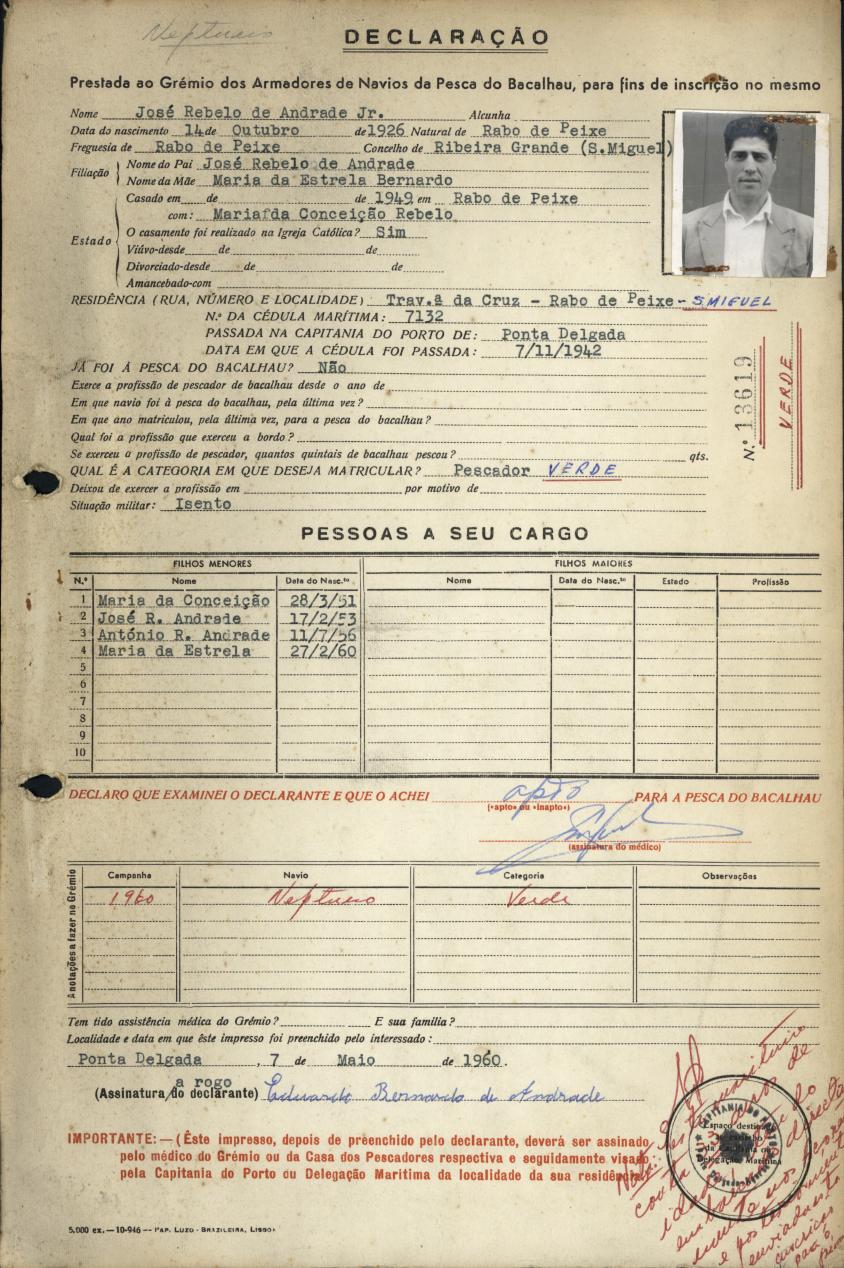 Neptuno
DECLARAÇÃO
Prestada ao Grémio dos Armadores de Navios da Pesca do Bacalhau, para fins de inscrição no mesmo
Nome José Rebelo de Andrade Jr. Alcunha
Data do nascimento 14 de Outubro de 1926 Natural de Rabo de Peixe
Freguesia de Rabo de Peixe Concelho de Ribeira Grande (S.Miguel)
Filiação
Nome do Pai José Rebelo de Andrade
Nome da Mãe Maria da Estrela Bernardo
Estado
Casado em de de 1949 em Rabo de Peixe
com: Maria da Conceição Rebelo
O casamento foi realizado na Igreja Católica? Sim
Viúvo-desde de de
Divorciado-desde de de
Amancebado-com
RESIDÊNCIA (RUA, NÚMERO E LOCALIDADE) Trav.ª da Cruz - Rabo de Peixe - S.MIGUEL
N.º DA CÉDULA MARÍTIMA: 7132
PASSADA NA CAPITANIA DO PORTO DE: Ponta Delgada
DATA EM QUE A CÉDULA FOI PASSADA: 7/11/1942
JÁ FOI Á PESCA DO BACALHAU? Não
Exerce a profissão de pescador de bacalhau desde o ano de
Em que navio foi à pesca do bacalhau, pela última vez?
Em que ano matriculou, pela última vez, para a pesca do bacalhau?
Qual foi a profissão que exerceu a bordo?
Se exerceu a profissão de pescador, quantos quintais de bacalhau pescou? qts.
QUAL É A CATEGORIA EM QUE DESEJA MATRICULAR? Pescador VERDE
Deixou de exercer a profissão em por motivo de
Situação militar: Isento
N.º 13619
VERDE
PESSOAS A SEU CARGO
FILHOS MENORES FILHOS MAIORES
N.º Nome Data do Nasc.to Nome Data do Nasc.to Estado Profissão
1 Maria da Conceição 28/3/51
2 José R. Andrade 17/2/53
3 António R. Andrade 11/7/56
4 Maria da Estrela 27/2/60
5
6
7
8
9
10
DECLARO QUE EXAMINEI O DECLARANTE E QUE O ACHEI apto PARA A PESCA DO BACALHAU
(«apto» ou «inapto»)
(assinatura do médico)
Anotações a fazer no Grémio
Campanha Navio Categoria Observações
1960 Neptuno Verde
Tem tido assistência médica do Grémio? E sua familia?
Localidade e data em que êste impresso foi preenchido pelo interessado:
Ponta Delgada , 7 de Maio de 1960.
a rogo
(Assinatura do declarante) Eduardo Bernardo de Andrade
IMPORTANTE:— (Êste impresso, depois de preenchido pelo declarante, deverá ser assinado
pelo médico do Grémio ou da Casa dos Pescadores respectiva e seguidamente visado
pela Capitania do Porto ou Delegação Maritima da localidade da sua residência).
Espaço
da Capitania ou
Delegação Marítima
5.000 ex.—10-946 — PAP. LUZO-BRAZILEIRA, LISBOA